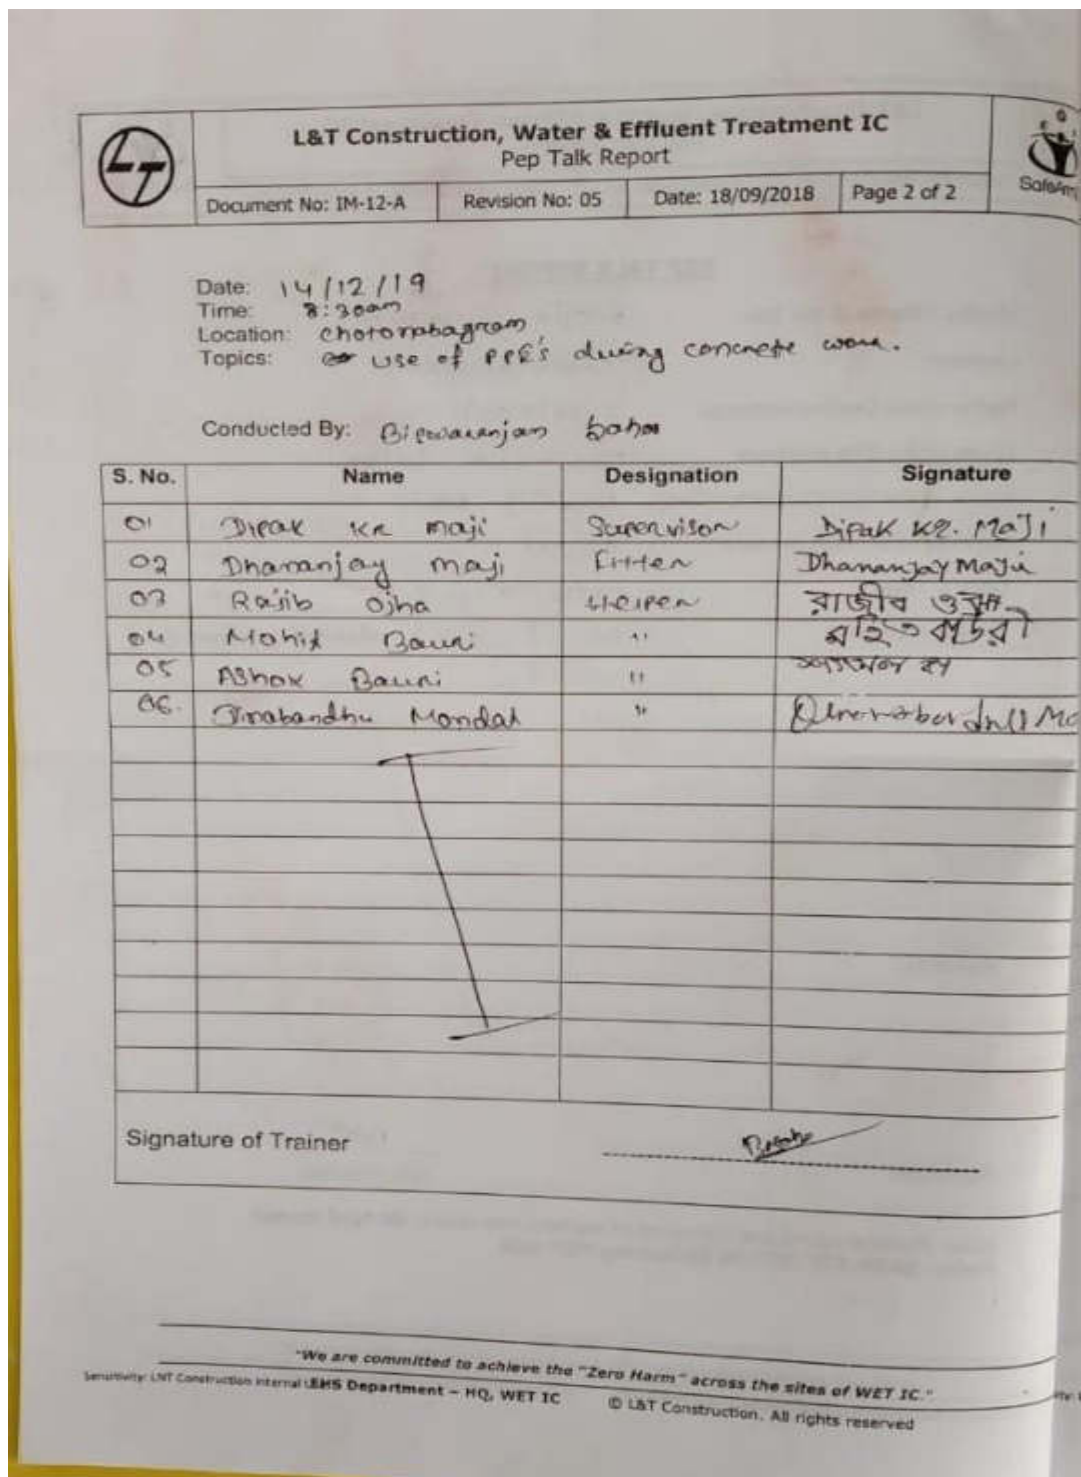 L&T Construction, Water & Effluent Treatment IC
Pep Talk Report
Document No: IM-12-A Revision No: 05 Date: 18/09/2018 Page 2 of 2
Date: 14/12/19
Time: 8:30am
Location:
Topics: use of PPE's during concrete work.
Conducted By: Biswaranjan
S. No. Name Designation Signature
01 Dipak KR maji Supervisor Dipak KR. Maji
02 Dhananjay maji Fitter Dhananjay Maji
03 Rajib Ojha Helper রাজীব ওঝা
04 Mohit Bauri " মহিত বাউরী
05 Ashok Bauri "
06. Dinabandhu Mondal "
Signature of Trainer
"We are committed to achieve the "Zero Harm" across the sites of WET IC."
Sensitivity: LNT Construction Internal Use EHS Department – HQ, WET IC © L&T Construction. All rights reserved